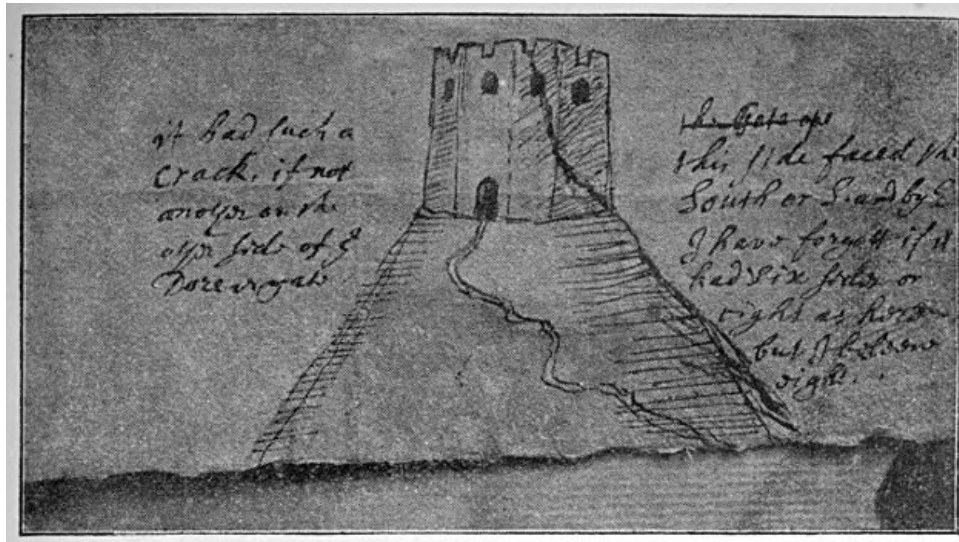 it had such a
crack, if not
another on the
other side of ye
Dore or gate
the Gate ops
this side faced the
South or S. and by E
I have forgott if it
had six sides or
eight as here
but I beleeve
eight.